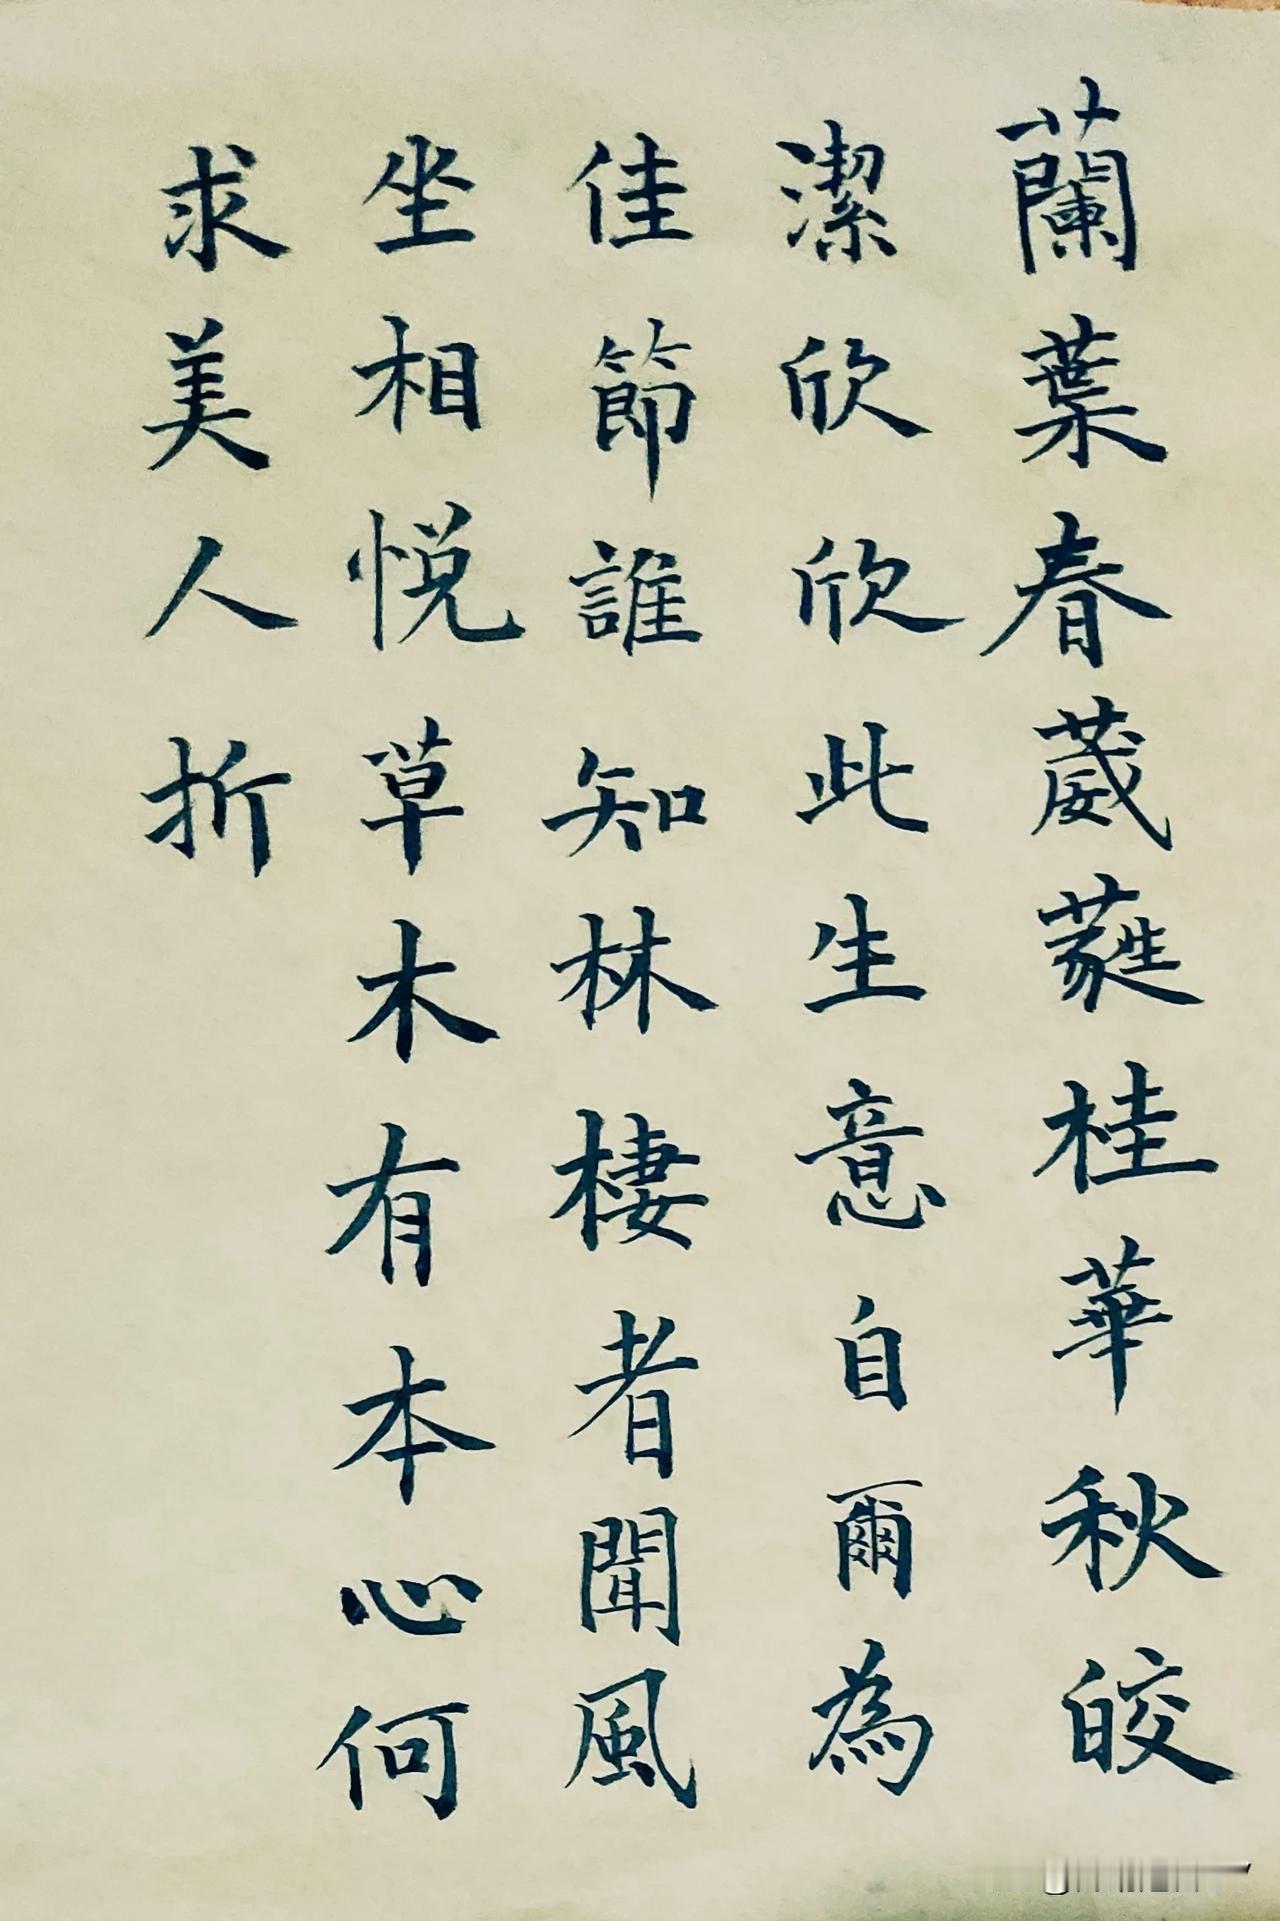 蘭葉春葳蕤桂華秋皎
潔欣欣此生意自爾為
佳節誰知林棲者聞風
坐相悅草木有本心何
求美人折